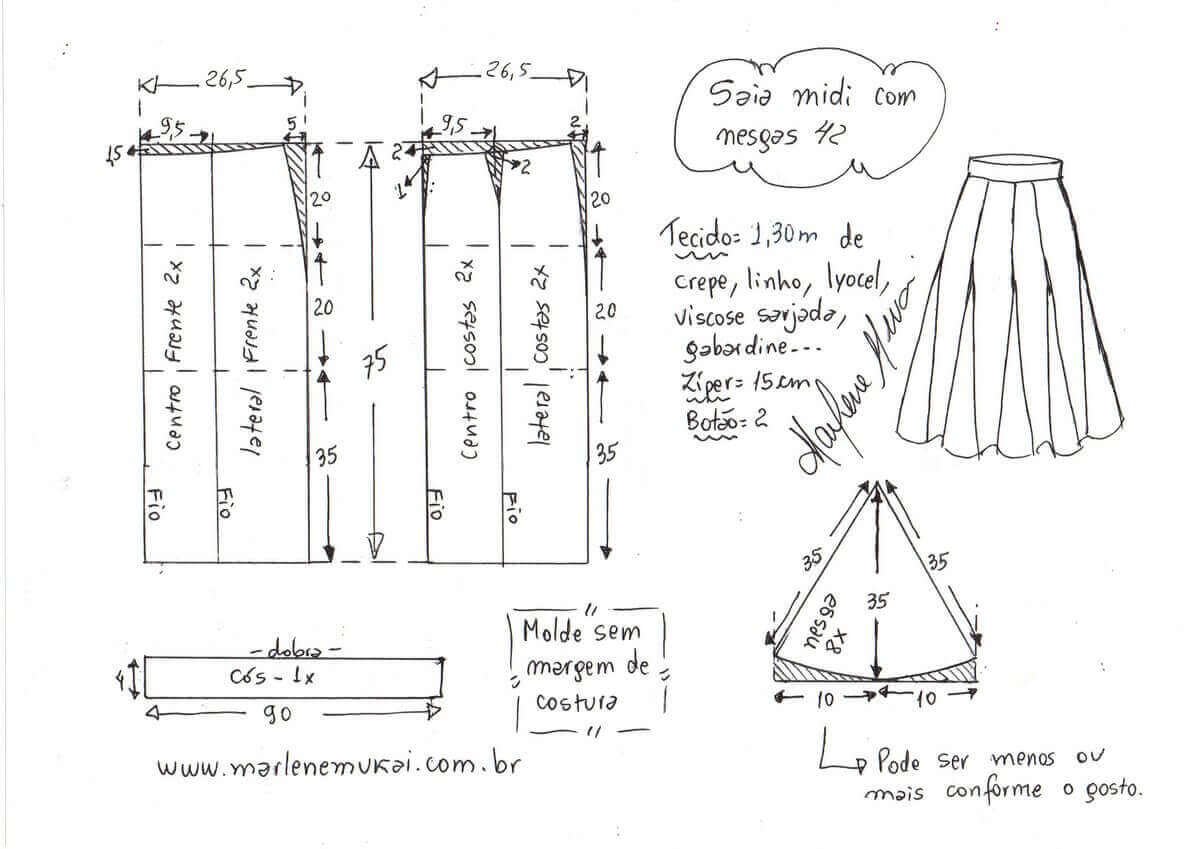 Saia midi com
nesgas 42
26,5
9,5
5
1,5
20
20
35
centro frente 2x
lateral frente 2x
Fio
Fio
75
26,5
9,5
2
2
1
2
20
20
35
centro costas 2x
lateral costas 2x
Fio
Fio
Tecido= 1,30m de
crepe, linho, lyocel,
viscose sarjada,
gabardine---
Zíper= 15cm
Botão= 2
Marlene Mukai
35
35
35
nesga
8x
10
10
Pode ser menos ou
mais conforme o gosto.
- dobra -
cós - 1x
4
90
Molde sem
margem de
costura
www.marlenemukai.com.br